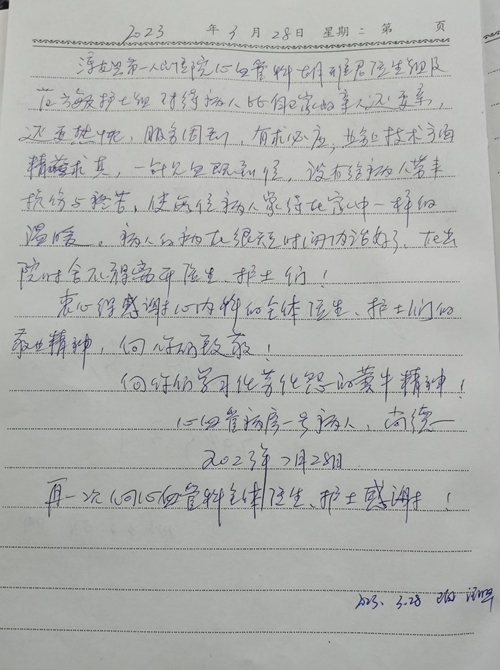 2023 年 3 月 28 日 星期 二 第 页
淳安县第一人民医院心血管科胡 医生组及
范 敏护士组对待病人比自己家的亲人还要亲,
还要热忱,服务周到,有求必应,业务技术方面
精益求真,一针见血 ,没有给病人带来
损伤与轻苦,使每位病人象待在家中一样的
温暖。病人的病在很短时间内治好了,在出
院时舍不得离开医生护士们!
衷心得感谢心内科的全体医生、护士们的
敬业精神,向你们致敬!
向你们学习任劳任怨的黄牛精神!
心血管病房一号病人、尚德一
2023年3月28日
再一次向心血管科全体医生、护士感谢!
2023. 3.28